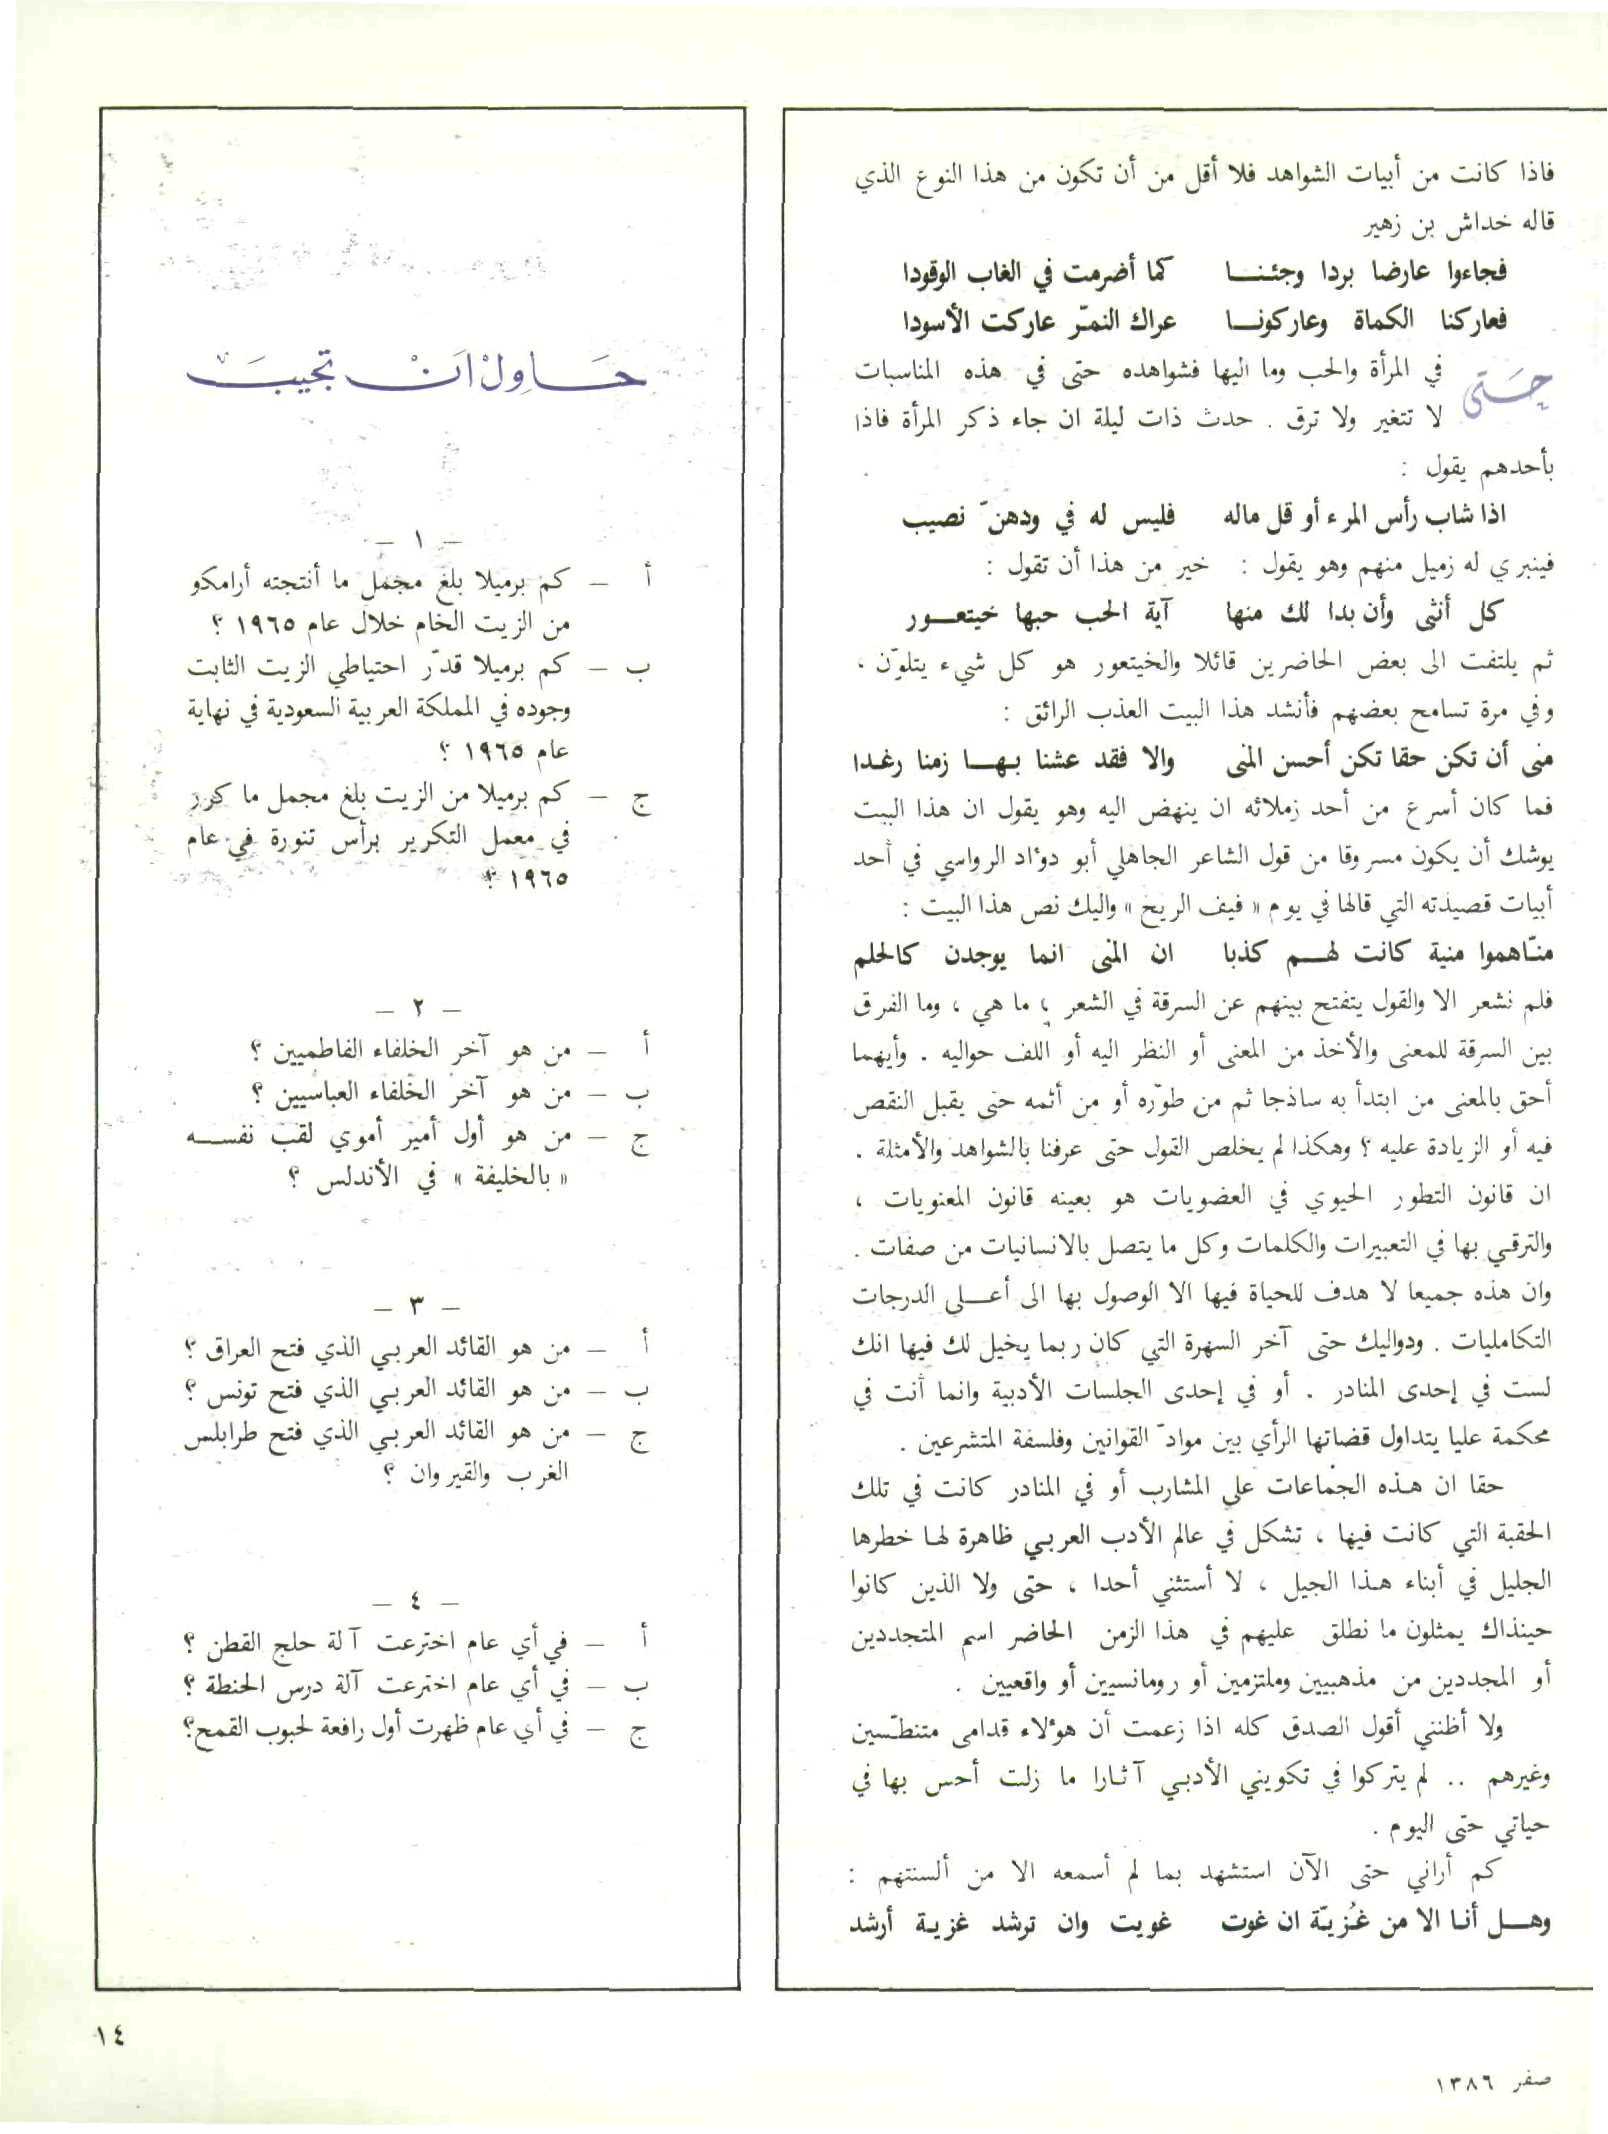 فاذا كانت من أبيات الشواهد فلا أقل من أن تكون من هذا النوع الذي
قاله خداش بن زهير
فجاءوا عارضا بردا وجئنــا كما أضرمت في الغاب الوقودا
فعاركنا الكماة وعاركونــا عراك النمّر عاركت الأسودا
حَتى في المرأة والحب وما اليها فشواهده حتى في هذه المناسبات
لا تتغير ولا ترق . حدث ذات ليلة ان جاء ذكر المرأة فاذا
بأحدهم يقول :
اذا شاب رأس المرء أو قل ماله فليس له في ودهنّ نصيب
فينبري له زميل منهم وهو يقول : خير من هذا أن تقول :
كل أنثى وأن بدا لك منها آية الحب حبها خيتعــور
ثم يلتفت الى بعض الحاضرين قائلا والخيتعور هو كل شيء يتلوّن ،
وفي مرة تسامح بعضهم فأنشد هذا البيت العذب الرائق :
منى أن تكن حقا تكن أحسن المنى والا فقد عشنا بهــا زمنا رغدا
فما كان أسرع من أحد زملائه ان ينهض اليه وهو يقول ان هذا البيت
يوشك أن يكون مسروقا من قول الشاعر الجاهلي أبو دوٴاد الرواسي في أحد
أبيات قصيدته التي قالها في يوم « فيف الريح » واليك نص هذا البيت :
منّاهموا منية كانت لهــم كذبا ان المنى انما يوجدن كالحلم
فلم نشعر الا والقول يتفتح بينهم عن السرقة في الشعر ، ما هي ، وما الفرق
بين السرقة للمعنى والأخذ من المعنى أو النظر اليه أو اللف حواليه . وأيهما
أحق بالمعنى من ابتدأ به ساذجا ثم من طوّره أو من أتمه حتى يقبل النقص
فيه أو الزيادة عليه ؟ وهكذا لم يخلص القول حتى عرفنا بالشواهد والأمثلة .
ان قانون التطور الحيوي في العضويات هو بعينه قانون المعنويات ،
والترقي بها في التعبيرات والكلمات وكل ما يتصل بالانسانيات من صفات .
وان هذه جميعا لا هدف للحياة فيها الا الوصول بها الى أعــلى الدرجات
التكامليات . ودواليك حتى آخر السهرة التي كان ربما يخيل لك فيها انك
لست في إحدى المنادر . أو في إحدى الجلسات الأدبية وانما أنت في
محكمة عليا يتداول قضاتها الرأي بين موادّ القوانين وفلسفة المتشرعين .
حقا ان هــذه الجماعات على المشارب أو في المنادر كانت في تلك
الحقبة التي كانت فيها ، تشكل في عالم الأدب العربي ظاهرة لهــا خطرها
الجليل في أبناء هــذا الجيل ، لا أستثني أحدا ، حتى ولا الذين كانوا
حينذاك يمثلون ما نطلق عليهم في هذا الزمن الحاضر اسم المتجددين
أو المجددين من مذهبيين وملتزمين أو رومانسيين أو واقعيين .
ولا أظنني أقول الصدق كله اذا زعمت أن هوٴلاء قدامى متنطّسين
وغيرهم .. لم يتركوا في تكويني الأدبي آثارا ما زلت أحس بها في
حياتي حتى اليوم .
كم أراني حتى الآن استشهد بما لم أسمعه الا من ألسنتهم :
وهــل أنــا الا من غُزيّة ان غوت غويت وان ترشد غزيــة أرشد
حَــاوِلْ اَنْ تجيبَ
– ١ –
أ – كم برميلا بلغ مجمل ما أنتجته أرامكو
من الزيت الخام خلال عام ١٩٦٥ ؟
ب – كم برميلا قدّر احتياطي الزيت الثابت
وجوده في المملكة العربية السعودية في نهاية
عام ١٩٦٥ ؟
ج – كم برميلا من الزيت بلغ مجمل ما كرر
في معمل التكرير برأس تنورة في عام
١٩٦٥ ؟
– ٢ –
أ – من هو آخر الخلفاء الفاطميين ؟
ب – من هو آخر الخلفاء العباسيين ؟
ج – من هو أول أمير أموي لقب نفســه
« بالخليفة » في الأندلس ؟
– ٣ –
أ – من هو القائد العربي الذي فتح العراق ؟
ب – من هو القائد العربي الذي فتح تونس ؟
ج – من هو القائد العربي الذي فتح طرابلس
الغرب والقيروان ؟
– ٤ –
أ – في أي عام اخترعت آلة حلج القطن ؟
ب – في أي عام اخترعت آلة درس الحنطة ؟
ج – في أي عام ظهرت أول رافعة لحبوب القمح؟
١٤
صفر ١٣٨٦